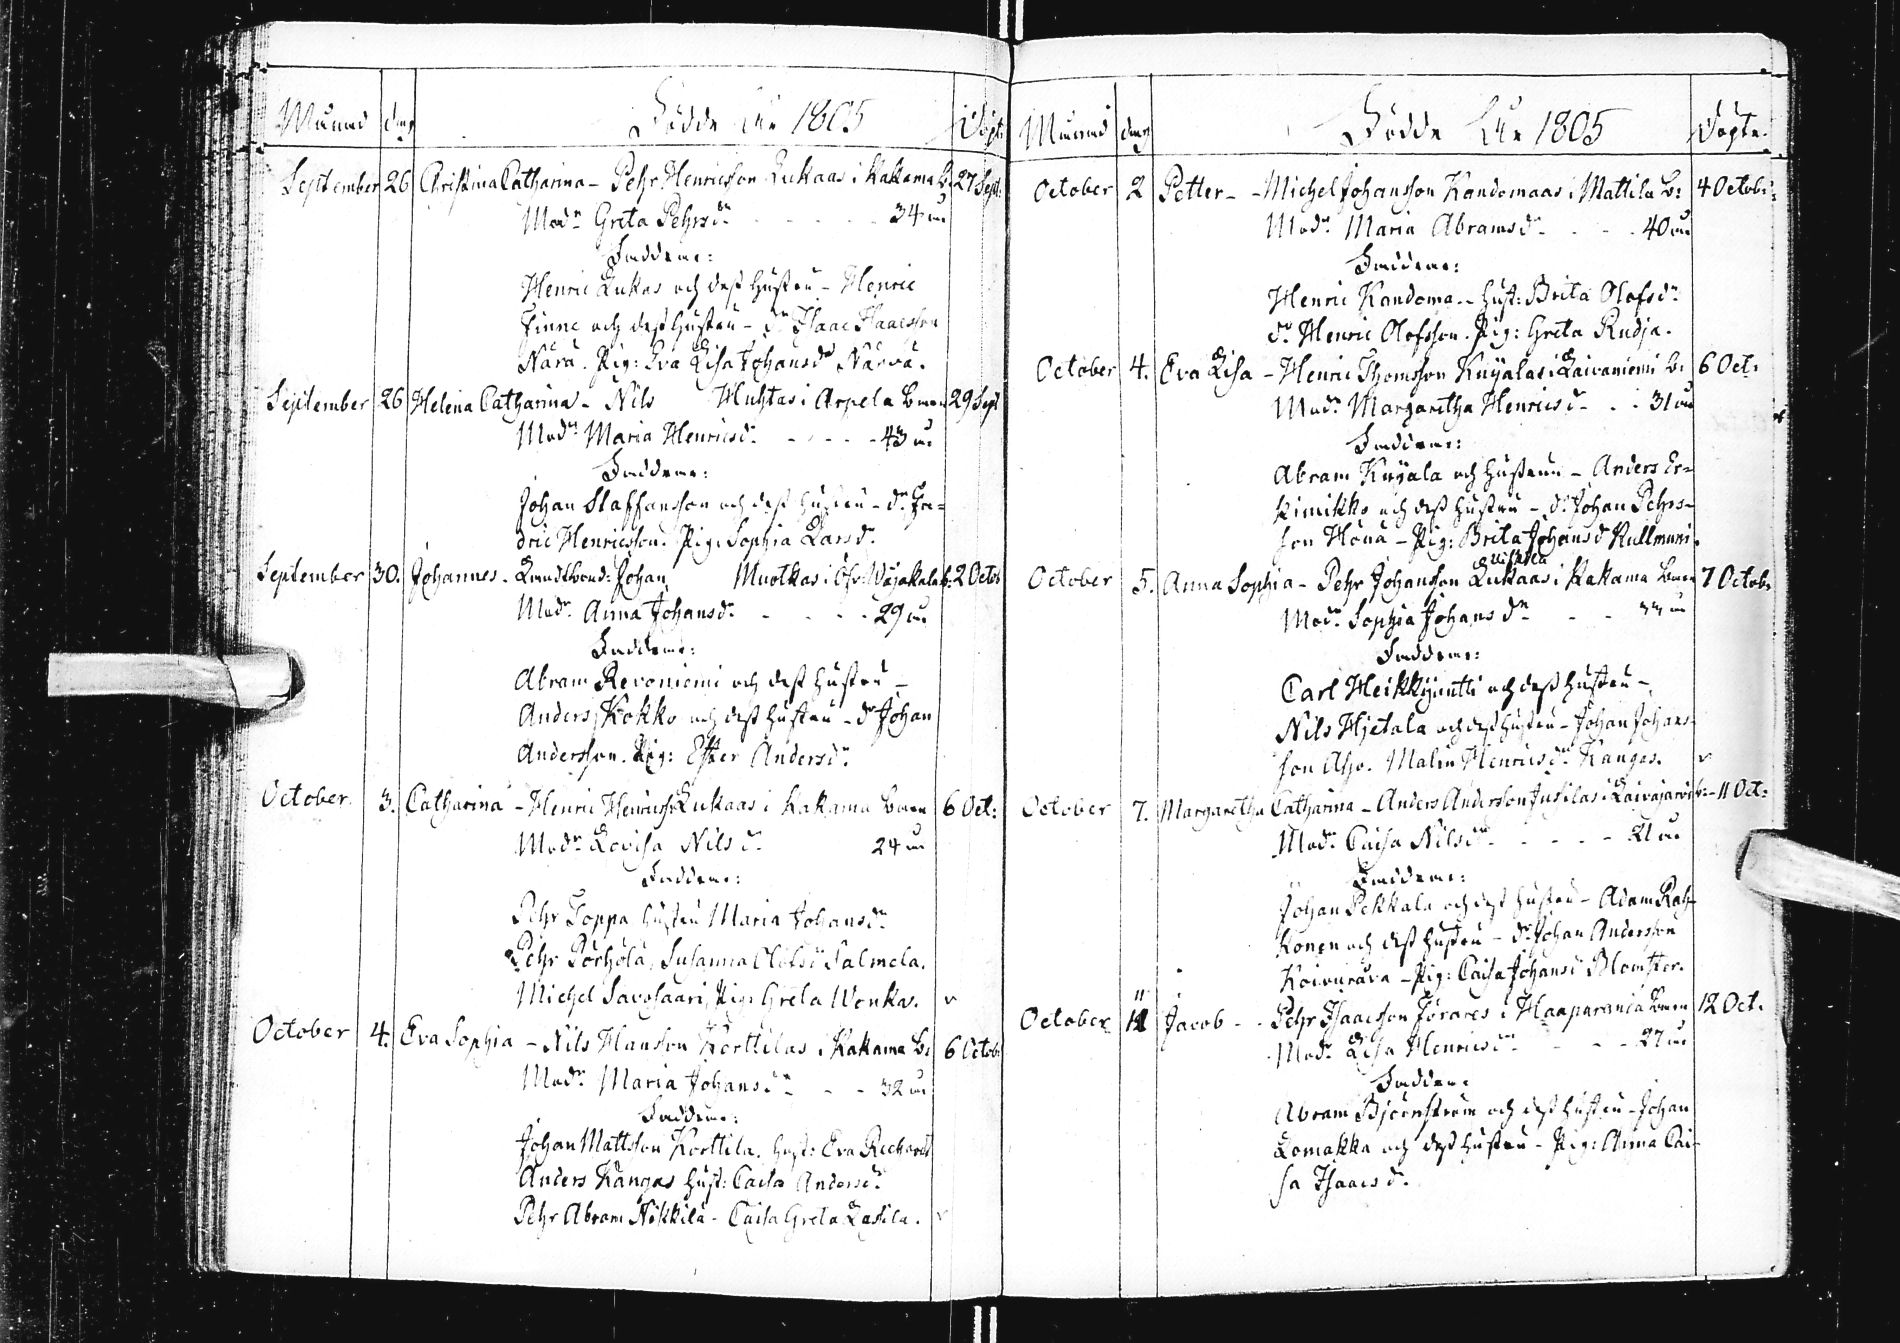 Månad dag Födde År 1805 Döpt:
September 26 Christina Catharina – Pehr Henricsson Lukaas i Kakama b: 27 Sept:
Modr. Greta Pehrsdr. - - - - - 34 år
Faddrar:
Henric Lukas och dess hustru – Henric
Finne och dess hustru – dr. Isaac Isaacsson
Närä. Pig: Eva Lisa Johansdr Närvä.
September 26 Helena Catharina – Nils Muhtas i Arpela Byen 29 Sept
Modr. Maria Henricsdr. - - - - - 43 år
Faddrar:
Johan Staffansson och dess hustru – dr. Fre=
dric Henricsson. Pig: Sophia Larsdr.
September 30. Johannes. Landtbond: Johan Muotkas i Öfr: Wojakala b: 2 Octob
Modr. Anna Johansdr. - - - - 29 år
Faddrar:
Abram Revoniemi och dess hustru –
Anders Kokko och dess hustru – dr Johan
Andersson. Pig: Ester Andersdr.
October 3. Catharina – Henric Henricss: Lukaas i Kakama Byen 6 Oct:
Modr. Lovisa Nilsdr. 24 år
Faddrar:
Pehr Toppa hustru Maria Johansdr
Pehr Pörhölä, Susanna Olofsdr Salmela.
Michel Savosaari, Pig: Greta Wonka.
October 4. Eva Sophia – Nils Hansson Korttilas i Kakama b: 6 Octob:
Modr. Maria Johansdr. - - - 32 år
Faddrar:
Johan Mattsson Korttila. hust: Eva Richardsd
Anders Kangas hust: Caisa Andersdr.
Pehr Abram Nikkilä – Caisa Greta Lassila.
Månad dag Födde År 1805 Döpte.
October 2 Petter – – Michel Johansson Kandomaas i Mattila b: 4 Octob:
Modr. Maria Abramsdr. - - - 40 år
Faddrar:
Henric Kandoma. – hust: Brita Olofsdr.
dr. Henric Olofsson. Pig: Greta Rudja.
October 4. Eva Lisa – Henric Thomsson Knyalas i Laivaniemi b: 6 Oct:
Modr. Margaretha Henricsdr. - - 31 år
Faddrar:
Abram Knyala och hustrun – Anders Er=
kinikko och dess hustru – dr. Johan Pehrs=
son Houa – Pig: Brita Johansdr Kullmuni.
October 5. Anna Sophia – Pehr Johansson Lukaas i Kakama Byen 7 Octob:
Modr. Sophia Johansdr. - - år
Faddrar:
Carl Heikkijuntti och dess hustru –
Nils Hjetala och dess hustru – Johan Johans-
son Malin Henricsdr Kangas.
October 7. Margaretha Catharina – Anders Andersson Jusilas i Laivajärvi b: – 11 Oct:
Modr. Caisa Nilsdr. - - - - - 21 år
Faddrar:
Johan Pekkala och dess hustru – Adam Rah-
konen och dess hustru – dr. Johan Andersson
Koivurova – Pig: Caisa Johansdr Blomster.
October 11 Jacob – – Pehr Isaacsson Jörares i Haaparanda Byen 12 Oct:
Modr. Lisa Henricsdr. - - - 27 år
Faddrar:
Abram Björnström och dess hustru – Johan
Lomakka och dess hustru – Pig: Anna Cai-
sa Isaacsdr.